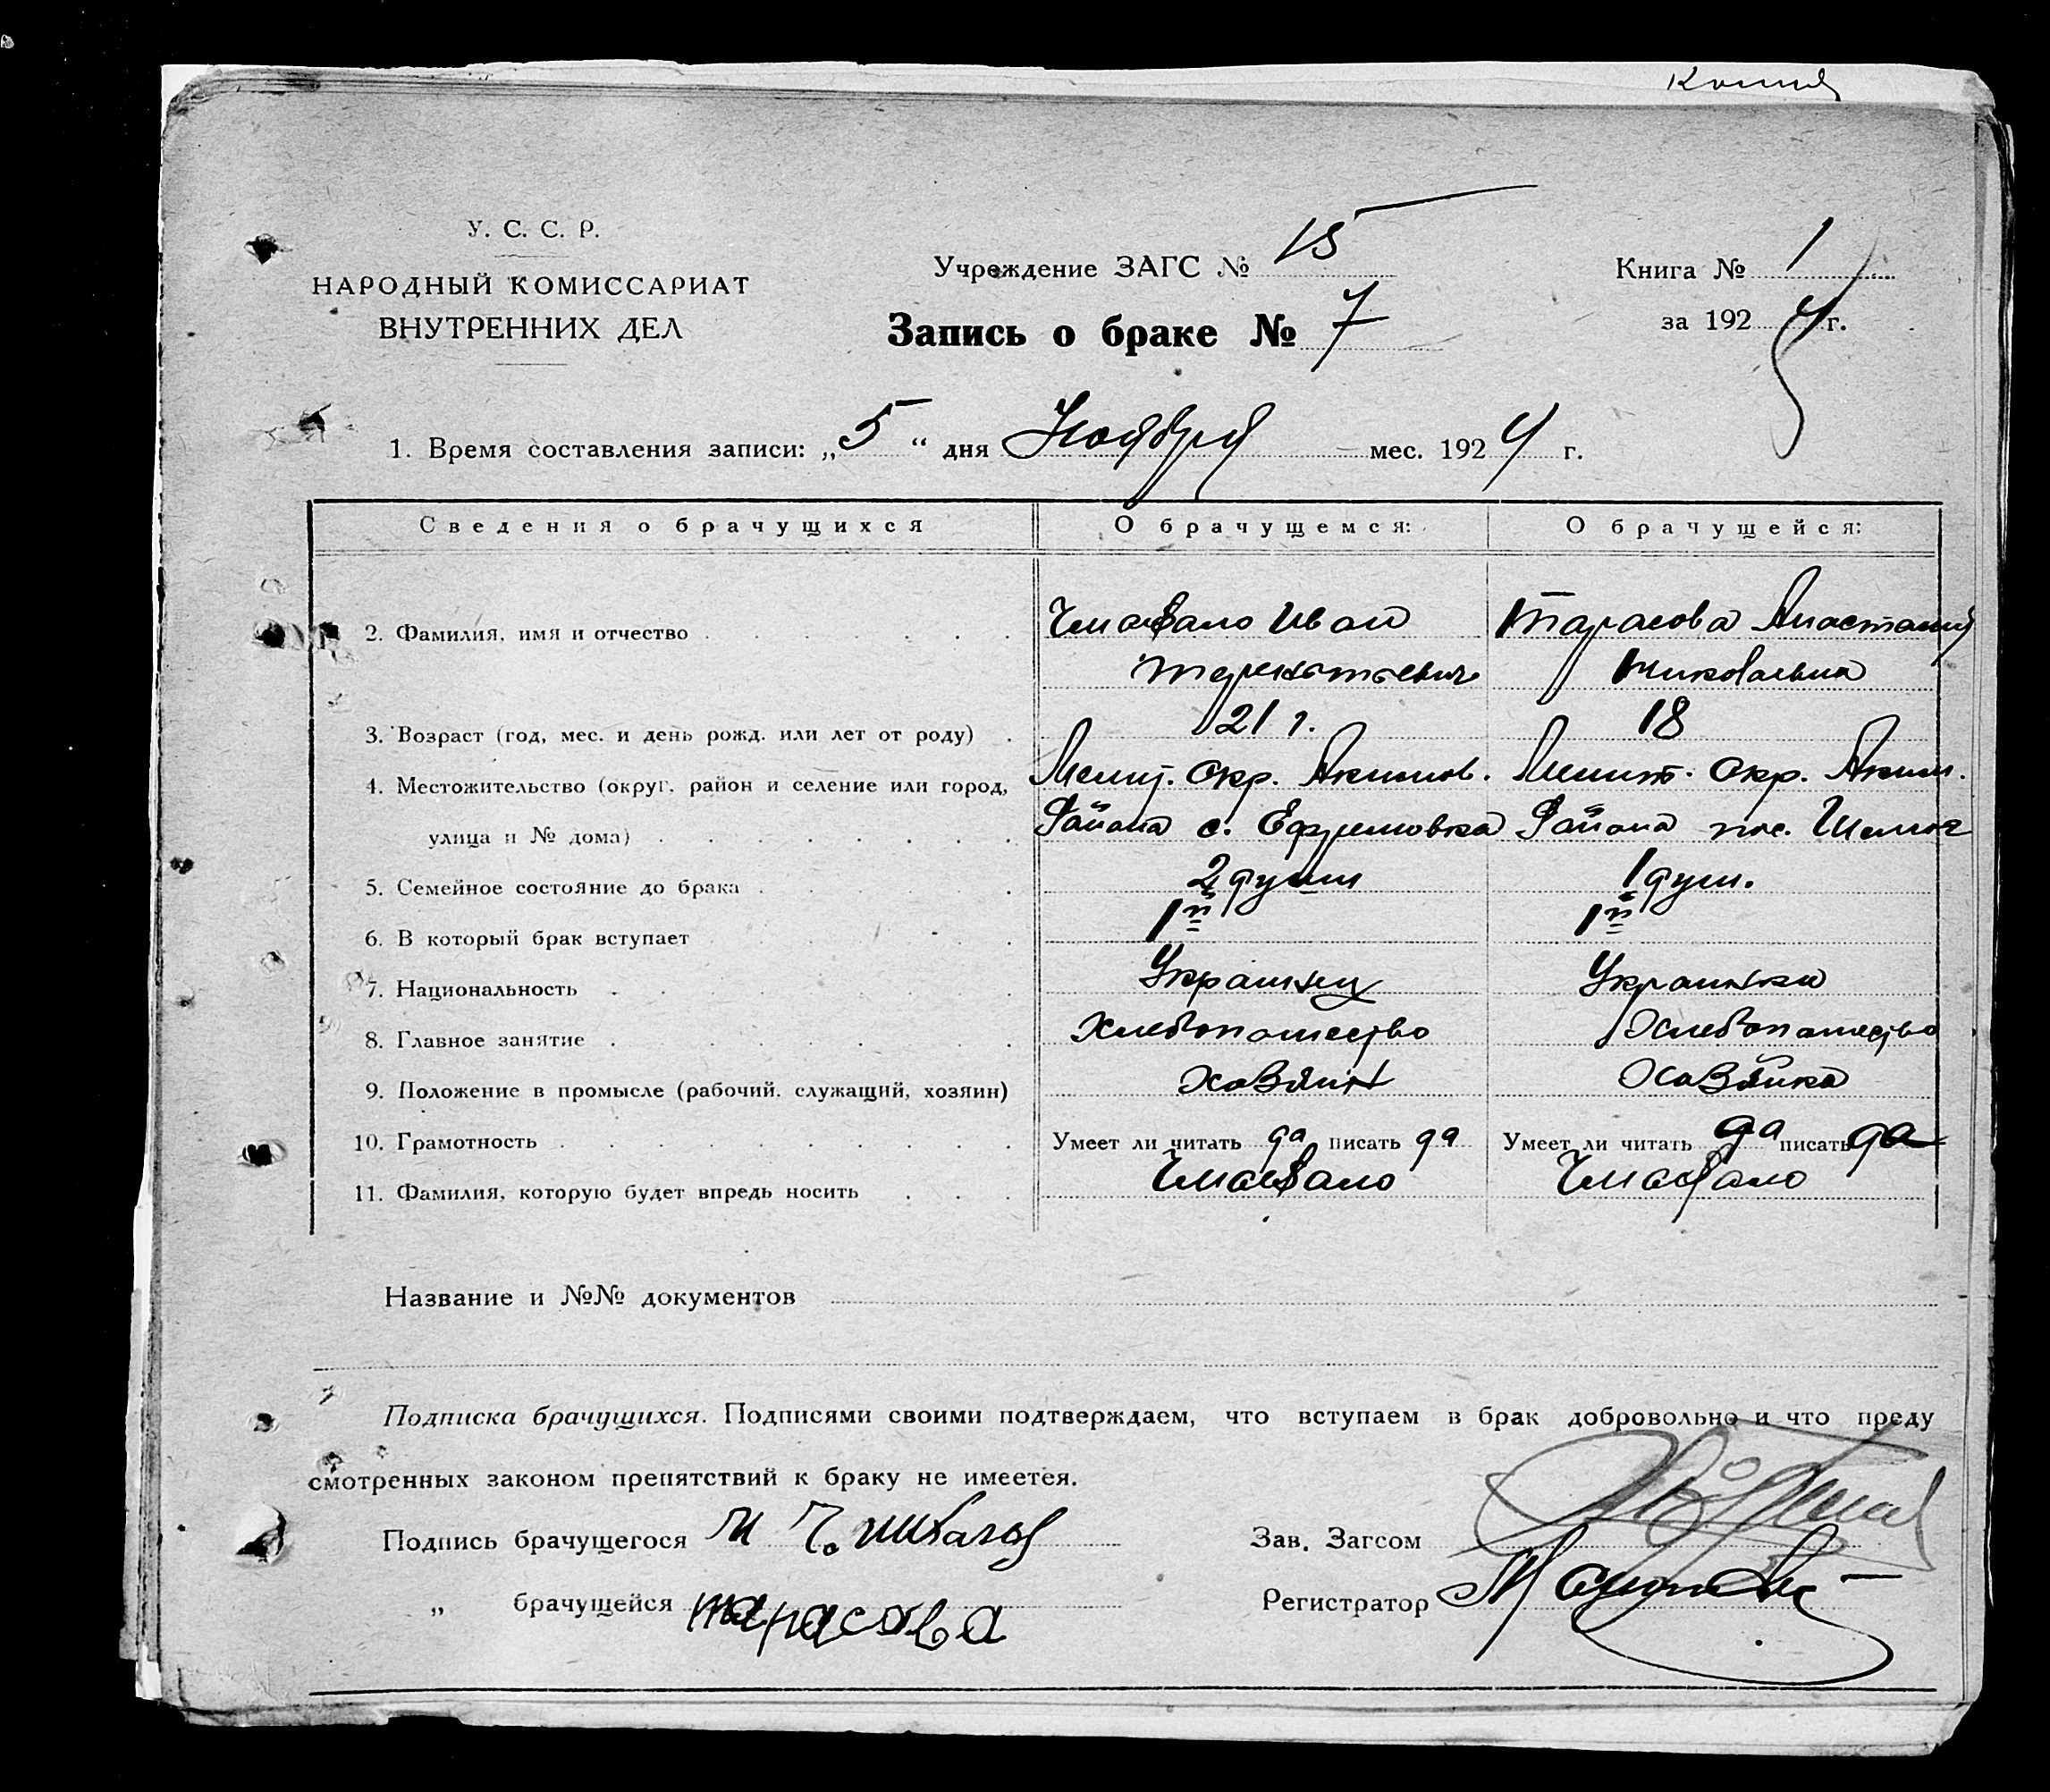 Копия
У. С. С. Р.
НАРОДНЫЙ КОМИССАРИАТ
ВНУТРЕННИХ ДЕЛ
Учреждение ЗАГС № 15
Книга № 1
Запись о браке № 7
за 1924 г.
1. Время составления записи: „5“ дня Ноября мес. 1924 г.
Сведения о брачущихся О брачущемся: О брачущейся:
2. Фамилия, имя и отчество Иван Тарасова Анастасия
Терентьевич Николаевна
3. Возраст (год, мес. и день рожд. или лет от роду) 21 г. 18
4. Местожительство (округ, район и селение или город, Мелит. Окр. Акимов. Мелит. Окр. Аким.
улица и № дома) Района с. Ефремовка Района пос.
5. Семейное состояние до брака 2 души 1 душ.
6. В который брак вступает 1й 1й
7. Национальность Украинец Украинка
8. Главное занятие Хлебопашество Хлебопашество
9. Положение в промысле (рабочий, служащий, хозяин) Хозяин Хозяйка
10. Грамотность Умеет ли читать да писать да Умеет ли читать да писать да
11. Фамилия, которую будет впредь носить
Название и №№ документов
Подписка брачущихся. Подписями своими подтверждаем, что вступаем в брак добровольно и что преду
смотренных законом препятствий к браку не имеется.
Подпись брачущегося И
Зав. Загсом
„ брачущейся тарасова
Регистратор